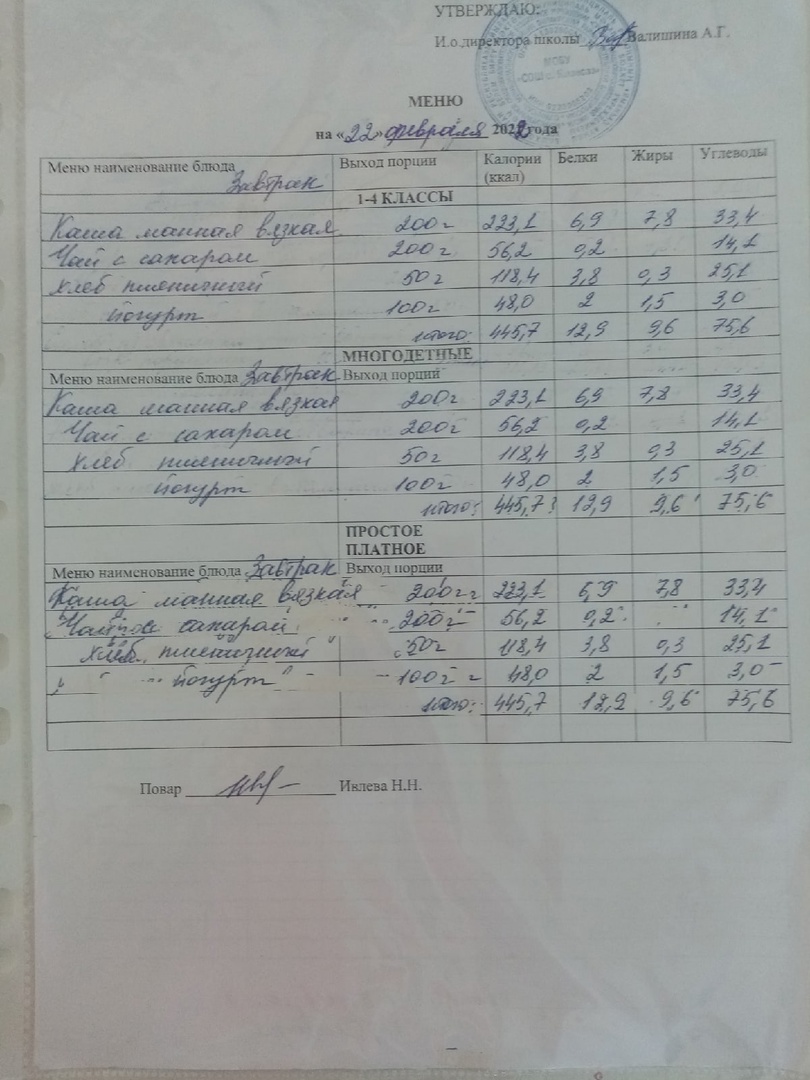 УТВЕРЖДАЮ:
И.о.директора школы Валишина А.Г.
МОБУ
МЕНЮ
на «22» февраля 2022 года
Меню наименование блюда Завтрак Выход порции Калории (ккал) Белки Жиры Углеводы
1-4 КЛАССЫ
Каша манная вязкая 200г 223,1 6,9 7,8 33,4
Чай с сахаром 200г 56,2 0,2 14,1
хлеб пшеничный 50г 118,4 3,8 0,3 25,1
йогурт 100г 48,0 2 1,5 3,0
итого: 445,7 12,9 9,6 75,6
МНОГОДЕТНЫЕ
Меню наименование блюда Завтрак Выход порции
Каша манная вязкая 200г 223,1 6,9 7,8 33,4
Чай с сахаром 200г 56,2 0,2 14,1
хлеб пшеничный 50г 118,4 3,8 0,3 25,1
йогурт 100г 48,0 2 1,5 3,0
итого: 445,7 12,9 9,6 75,6
ПРОСТОЕ
ПЛАТНОЕ
Меню наименование блюда Завтрак Выход порции
Каша манная вязкая 200г 223,1 6,9 7,8 33,4
Чай с сахаром 200г 56,2 0,2 14,1
хлеб пшеничный 50г 118,4 3,8 0,3 25,1
йогурт 100г 48,0 2 1,5 3,0
итого: 445,7 12,9 9,6 75,6
Повар Ивлева Н.Н.